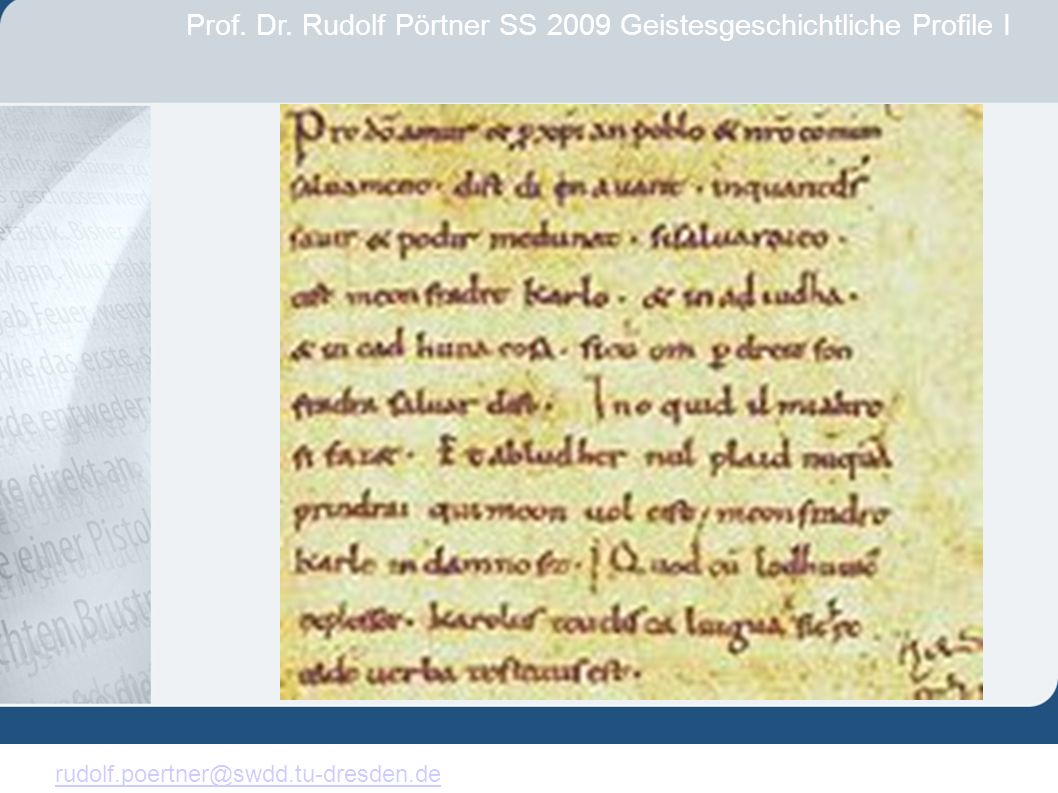 Prof. Dr. Rudolf Pörtner SS 2009 Geistesgeschichtliche Profile I
Pro dō amur & p xp̄ian poblo & nrō cōmun
saluament. dist di en auant. inquantds
sauir & podir medunat. sisaluaraieo.
cist meon fradre karlo. & in ad iudha.
& in cad huna cosa. sicū om p dreit son
fradra saluar dist. Ino quid il mialtre
si fazet. Et abludher nul plaid nūquā
prindrai qui meon uol cist meon fradre
karle in damno sit. Quod cū lodhuuic
explesset. karolus teudisca lingua sic hec
eadē uerba testatus est.
gab Feuer,
Wie das erste,
entweder
direkt an
einer Pistol
chten Brust
rudolf.poertner@swdd.tu-dresden.de